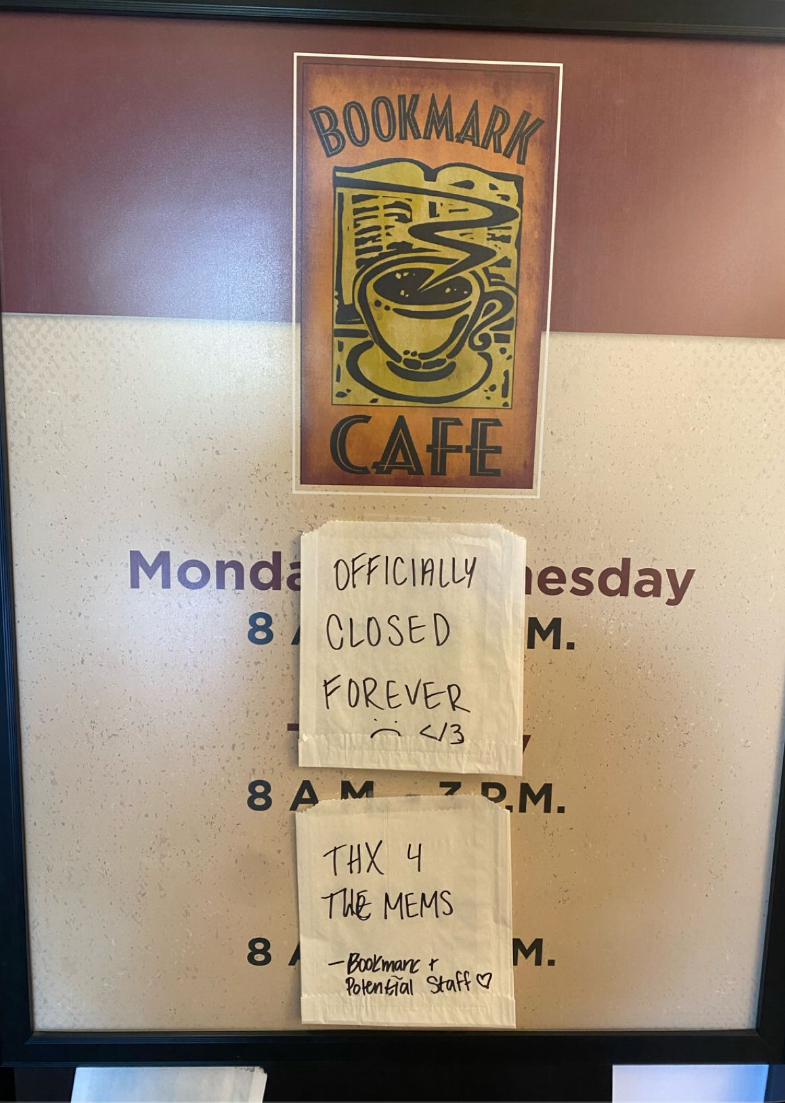 BOOKMARK
CAFE
OFFICIALLY
CLOSED
FOREVER
</3
8 A.M. - 7 P.M.
THX 4
THE MEMS
- Bookmark +
Potential Staff ♡
8
M.